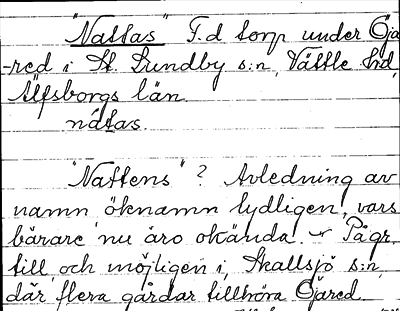 "Nattas" F.d torp under Öja
-red i St. Lundby s:n, Vättle hd,
Älfsborgs län.
nátas.
"Nattens"? Avledning av
namn öknamn tydligen, vars
bärare nu äro okända. Pågr.
till och möjligen i, Skallsjö s:n,
där flera gårdar tillhöra Öjared.